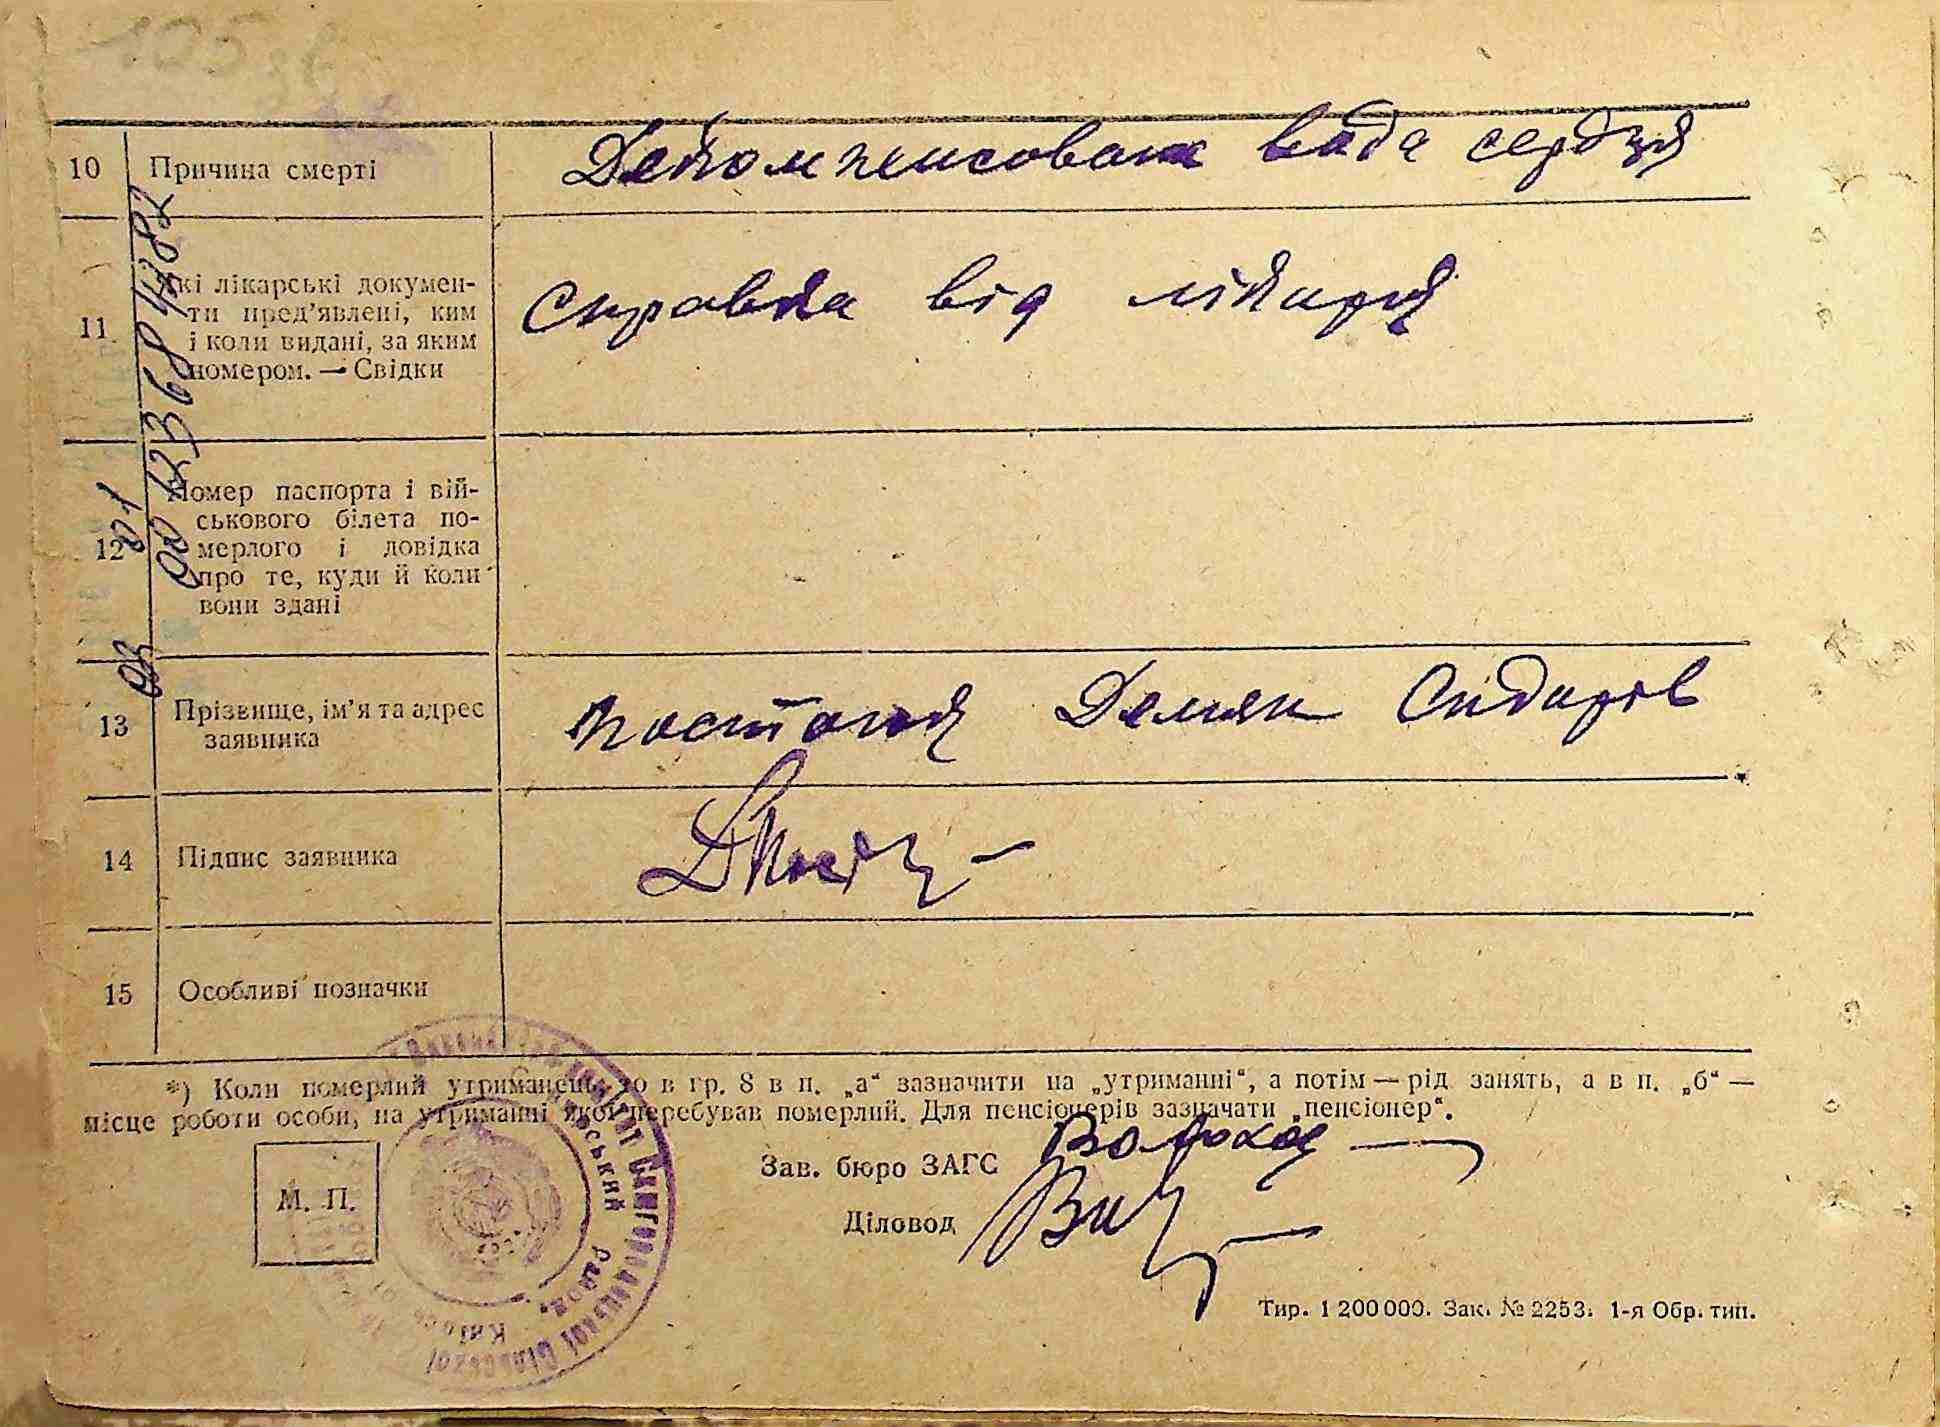 10 Причина смерті Декомпенсована вада сердця
11 які лікарські докумен-
ти пред'явлені, ким
і коли видані, за яким
номером. — Свідки
Справка від лікаря
12 Номер паспорта і вій-
ськового білета по-
мерлого і довідка
про те, куди й коли
вони здані
13 Прізвище, ім'я та адрес
заявника
Демян Сидорів
14 Підпис заявника
15 Особливі позначки
*) Коли померлий утриманець, то в гр. 8 в п. „а“ зазначити на „утриманні“, а потім — рід занять, а в п. „б“ —
місце роботи особи, на утриманні якої перебував померлий. Для пенсіонерів зазначати „пенсіонер“.
М. П.
Зав. бюро ЗАГС
Діловод
Тир. 1 200 000. Зак. № 2253. 1-я Обр. тип.